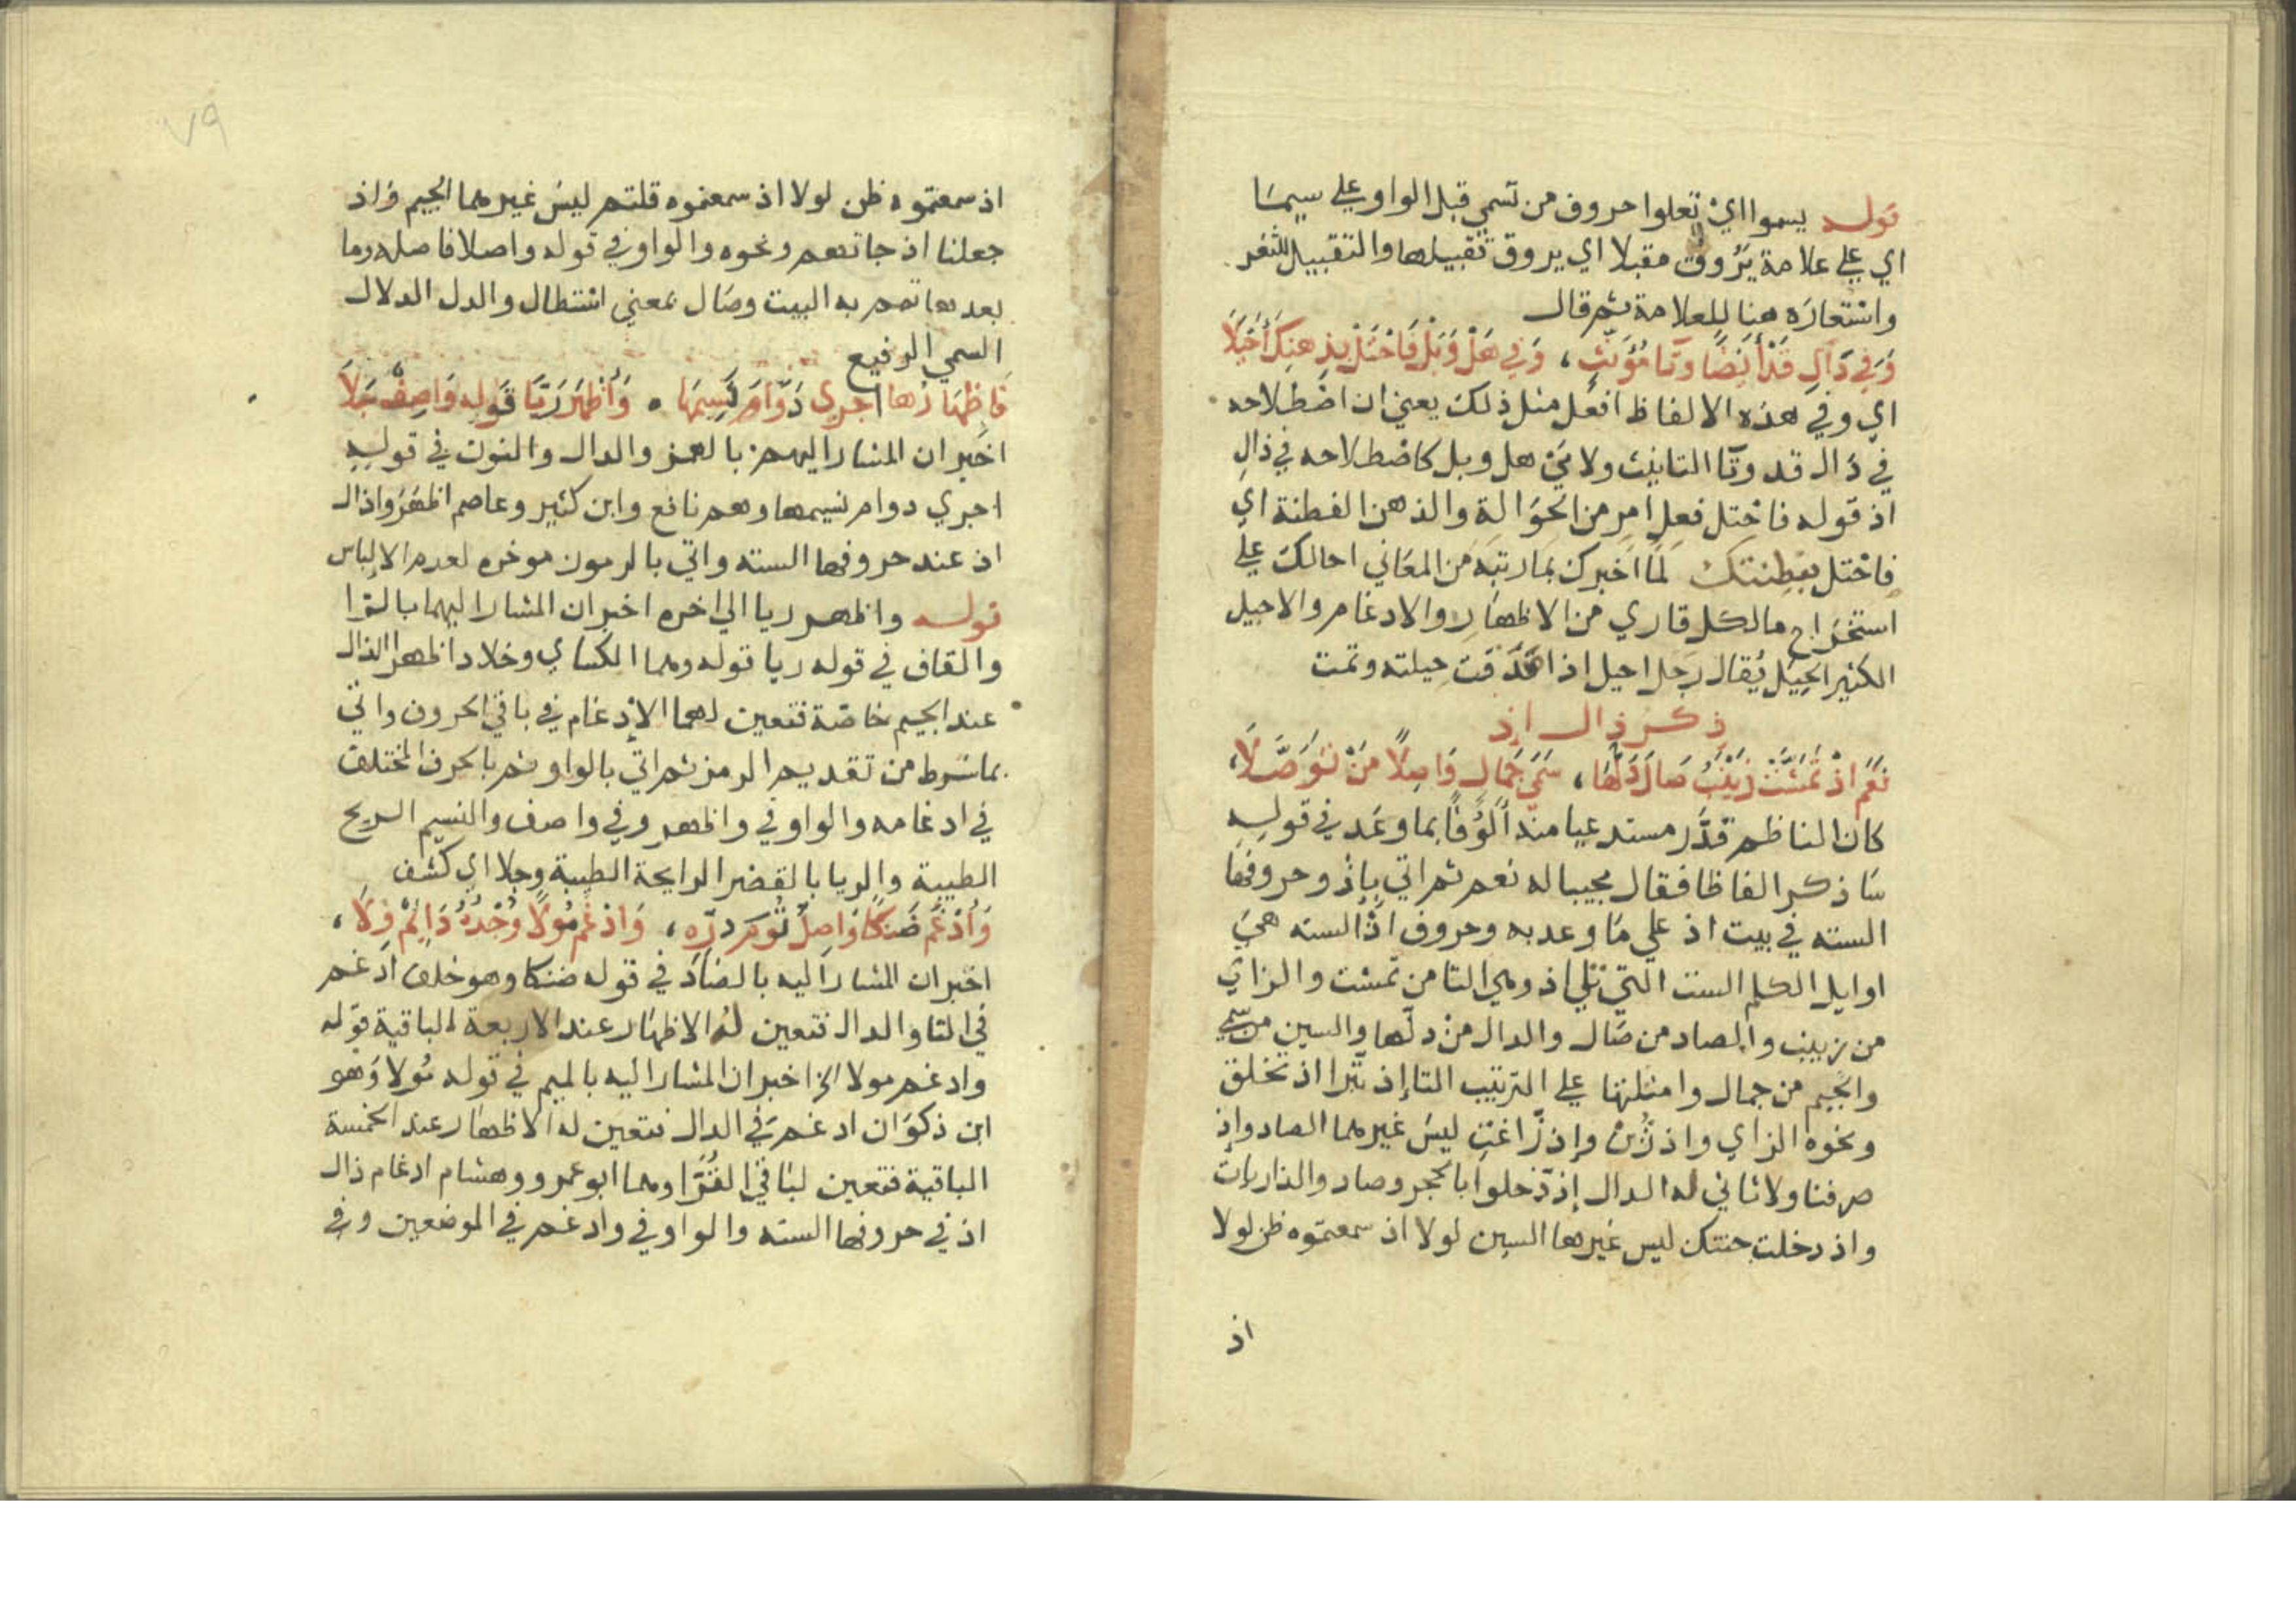 قوله يسموا اي تعلوا حروف من تسمي قبل الواو على سيما
اي على علامة يَرُوق مقبلا اي يروق تقبيلها والتقبيل للثغر
واستعاره هنا للعلامة ثم قال
وَفي دَالِ قَدْ أَيْضًا وتَا مُؤَنَّثٍ ، وَفِي هَلْ وَبَلْ فَاحْتَلْ بِذِهنِكَ أَحْيَلَا
اي وفي هذه الالفاظ افعل مثل ذلك يعني ان اصطلاحه
في دال قد وتا التانيث ولامي هل وبل كاصطلاحه في ذال
اذ قوله فاحتل فعل امر من الحوالة والذهن الفطنة اي
فاحتل بفطنتك لما اخبرك بما رتبه من المعاني احالك على
استخراج مالكل قاري من الاظهار والادغام والاحيل
الكثير الحيل يُقال رجل احيل اذا صدقت حيلته وتمت
ذكر ذال اذ
نَعَم اذْ تَمَشَّتْ زَيْنَبٌ صَالَ دَلُّهَا ، سَمِيَّ جَمَالٍ وَاصِلًا مَنْ تَوَصَّلَا ،
كان الناظم قدَّر مستدعيا منه الوُفَا بما وعد في قوله
سَا ذكر الفاظا فقال مجيبا له نعم ثم اتي بإذ وحروفها
السته في بيت اذ على مَا وعد به وحروف اذ السته هي
اوايل الكلم الست التي تلي اذ وهي التا من تمشت والزاي
من زينب والصاد من صَال والدال من دلّها والسين من سمي
والجيم من جمال وامثلتها على الترتيب التا إذ تبرا اذ تخلق
ونحوه الزاي واذ زُيّن وإذ زّاغت ليسَ غيرهما الصاد وإذ
صرفنا ولا ثاني له الدال إذ دّخلوا بالحجر وصاد والذاريات
واذ دخلت جنتك ليس غيرها السين لولا اذ سمعتموه ظن لولا
اذ
٧٩
اذ سمعتموه ظن لولا اذ سمعتموه قلتم ليسَ غيرهما الجيم وَاذ
جعلنا اذ جاتهم ونحوه والواو في قوله واصلا فاصله وما
بعدها تمم به البيت وصَال بمعني استطال والدل الدلال
السمي الرفيع
فَاِظهَارُها اجرِي دَوَّامَ نَسِيمَها . وَأَظْهَرَ رَيَّا قَوْلِه وَاصِفٌ جَلَا
اخبر ان المشار اليهم بالهمز والدال والنون في قوله
اجري دوام نسيمها وهم نافع وابن كثير وعاصم اظهَرُوا ذال
اذ عند حروفها السته واتي بالرموز موخره لعدم الالباس
قوله واظهر ريا الى اخره اخبر ان المشار اليهما بالرّا
والقاف في قوله ريا قوله وهما الكساي وخلاد اظهرا الذال
عند الجيم خاصّة فتعين لهما الإدغام في باقي الحروف واتي
بما شرط من تقديم الرمز ثم اتي بالواو ثم بالحرف المختلف
في ادغامه والواو في واظهر وفي واصف والنسيم الريح
الطيبة والريا بالقصر الرايحة الطيبة وجلا اي كشف
وَأَدْغَم ضَنكًا وَاصِلٌ تُومَ دُرِّه ، وَادْغَم مُولًا وُجْدُهُ دَايِمٌ وِلَا ،
اخبر ان المشار اليه بالضاد في قوله ضنكا وهو خلف ادغم
في التا والدال فتعين لهُ الاظهار عند الاربعة الباقية قوله
وادغم مولا الخ اخبر ان المشار اليه بالميم في قوله مُولا وَهو
ابن ذكوَان ادغم في الدال فتعين له الاظهار عند الخمسة
الباقية فتعين لباقي القُرّا وهما ابو عمرو وهشام ادغام ذال
اذ في حروفها السته والواو في وادغم في الموضعين وفي